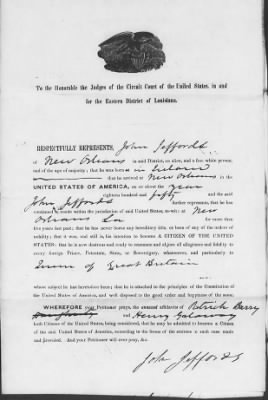 To the Honorable the Judges of the Circuit Court of the United States, in and
for the Eastern District of Louisiana.
RESPECTFULLY REPRESENTS, John Jeffords
of New Orleans in said District, an alien, and a free white person,
and of the age of majority; that he was born in Ireland
that he arrived at New Orleans in the
UNITED STATES OF AMERICA, on or about the year
eighteen hundred and fifty and the said
John Jeffords further represents, that he has
continued to reside within the jurisdiction of said United States, as well as New
Orleans La for more than
five years last past; that he has never borne any hereditary title, or been of any of the orders of
nobility; that it was, and still is, his intention to become A CITIZEN OF THE UNITED
STATES: that he is now desirous and ready to renounce and abjure all allegiance and fidelity to
every foreign Prince, Potentate, State, or Sovereignty, whatsoever, and particularly to
Queen of Great Britain
whose subject he has heretofore been; that he is attached to the principles of the Constitution of
the United States of America, and well disposed to the good order and happiness of the same.
WHEREFORE your Petitioner prays, the annexed affidavits of Patrick Barry
and Henry Galoway
both Citizens of the United States, being considered, that he may be admitted to become a Citizen
of the said United States of America, according to the forms of the statutes in such case made
and provided. And your Petitioner will ever pray, &c.
John Jeffords